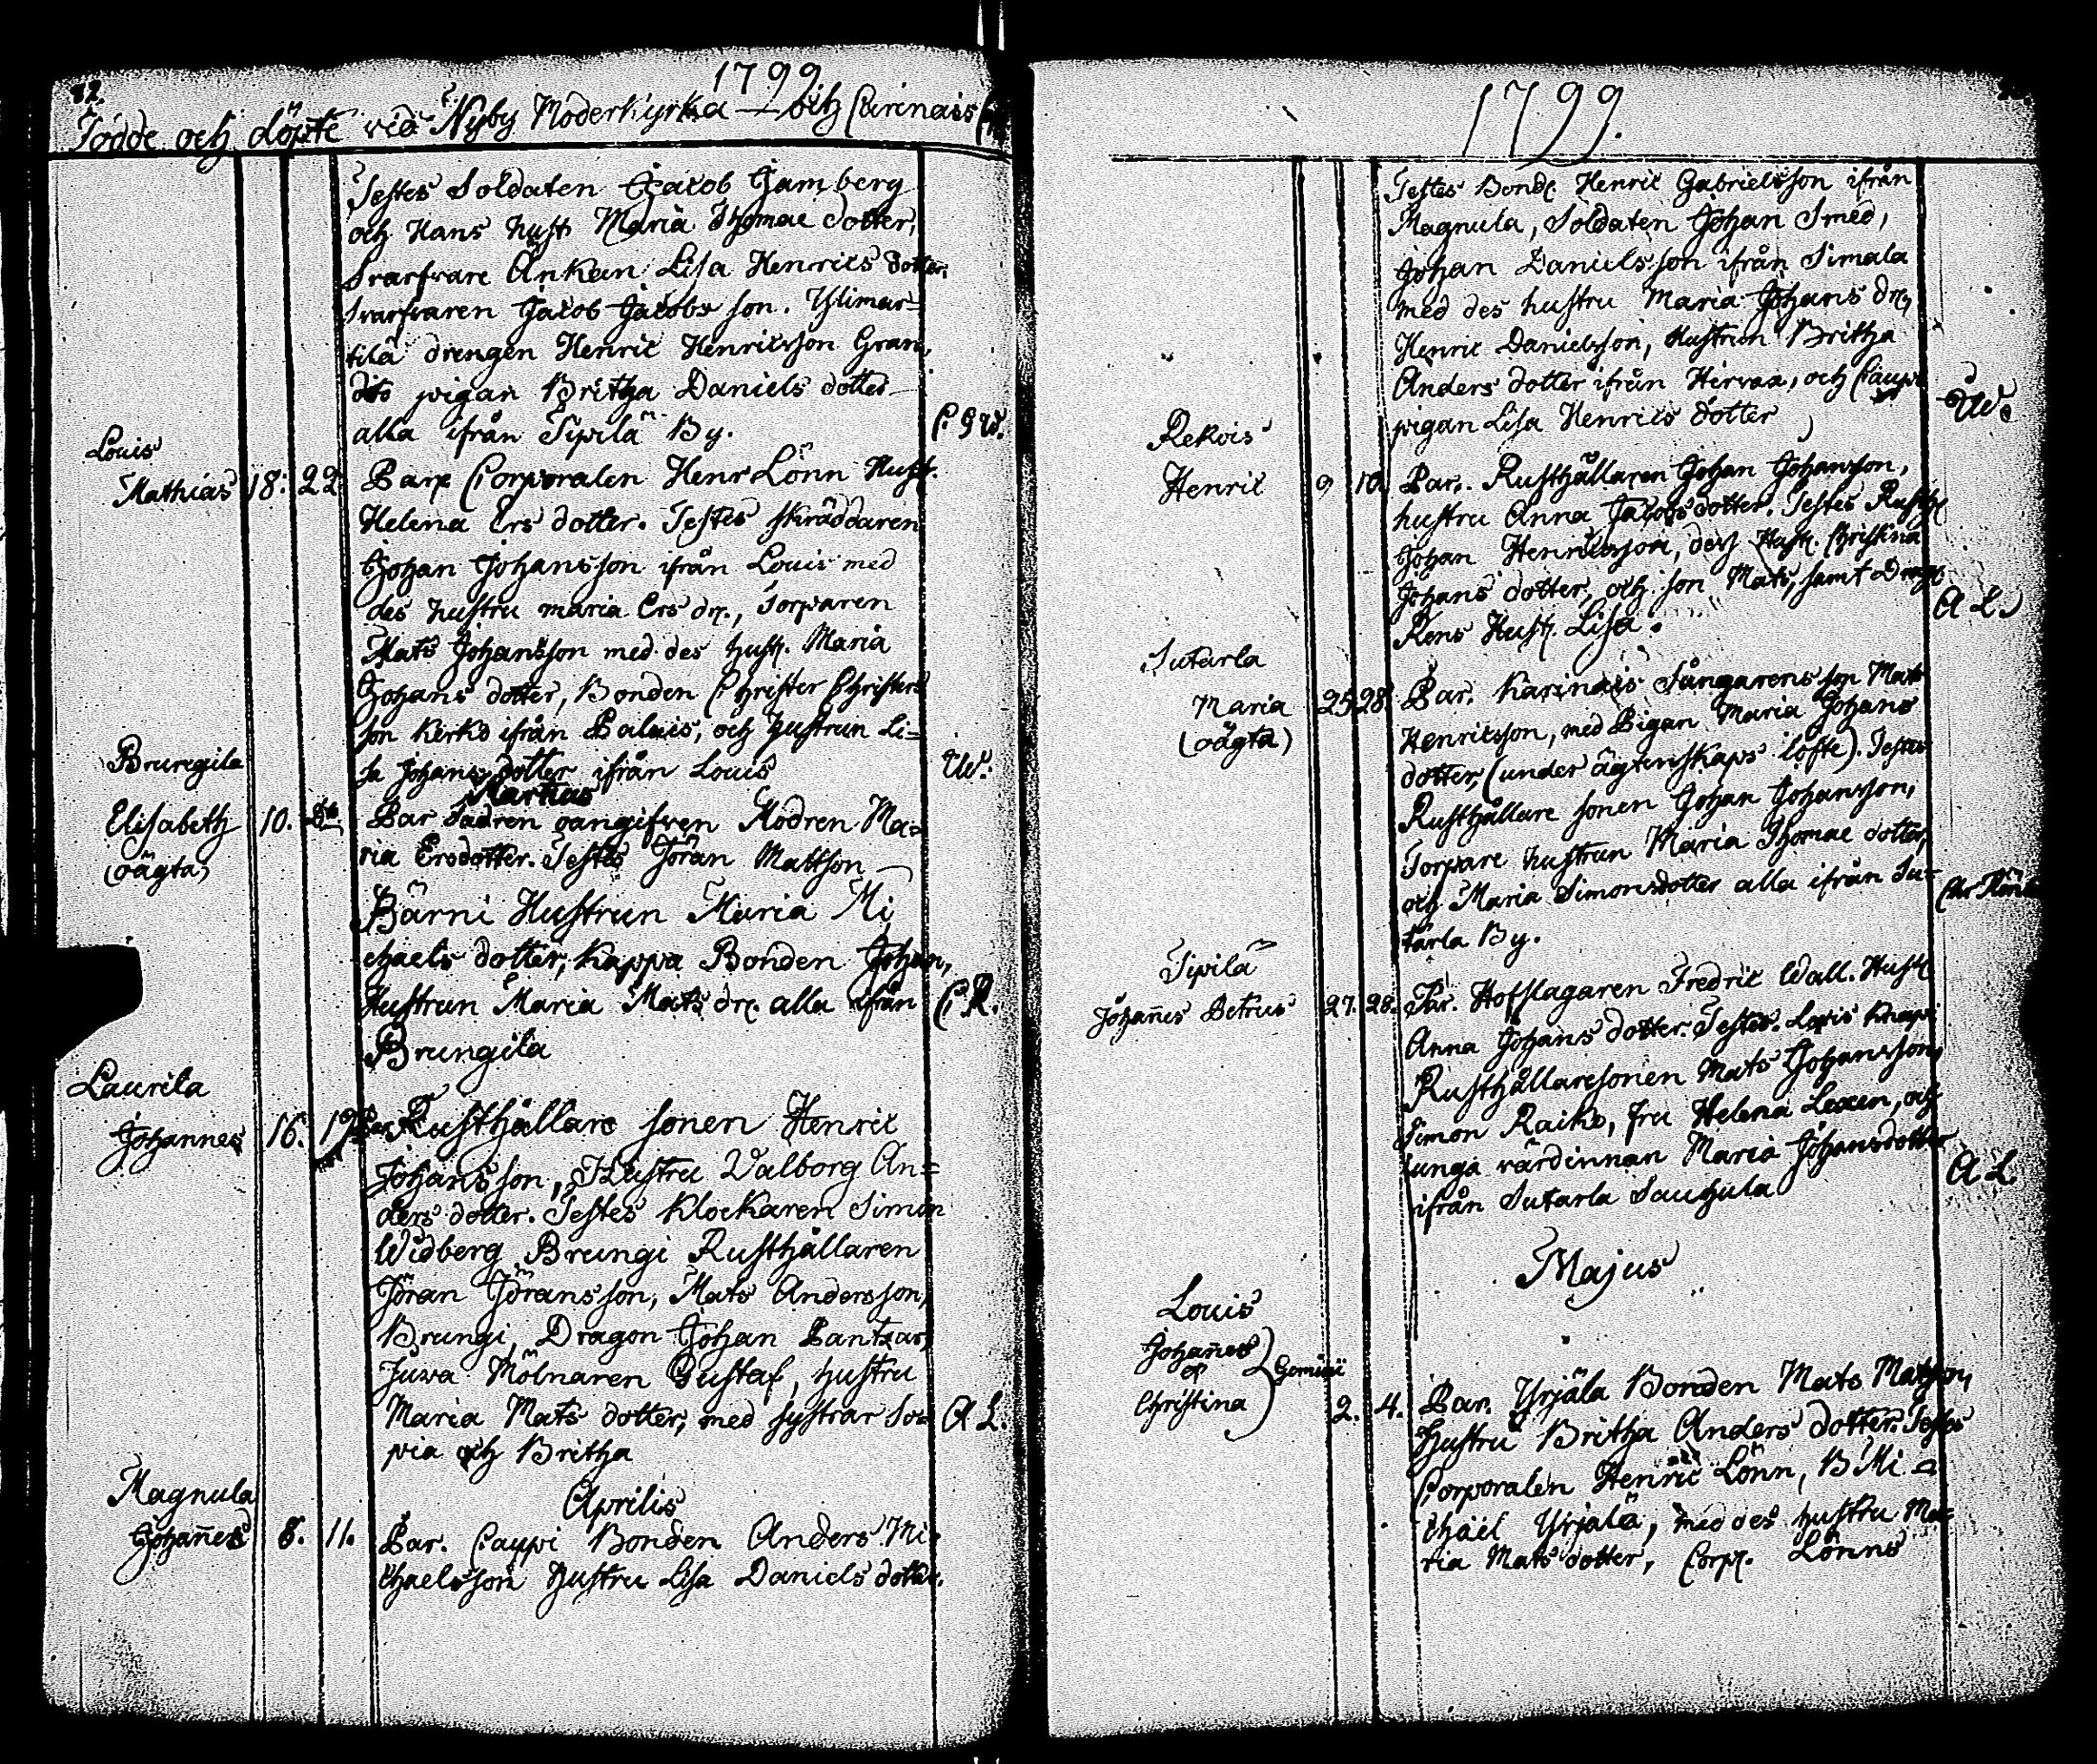 82.
1799
Födde och döpte vid Nyby Moderkyrka och Carinais
Testes Soldaten Jacob Jamberg
och Hans hust. Maria Thomae dotter,
Svarfvare Änkan Lisa Henrics dotter,
Svarfvaren Jacob Jacobs son. Ylimar=
tila drengen Henric Henricsson Gran,
dito pigan Britha Daniels dotter
alla ifrån Sipilä By.
C. G W.
Louis
Mathias 18. 22. Par. Corporalen Henr Lönn Hust.
Helena Ers dotter. Testes skräddaren
Johan Johansson ifrån Louis med
des hustru maria Ers dr., Torparen
Mats Johansson med des hust. Maria
Johans dotter, Bonden Christer Christers
son Kerko ifrån Palais, och hustrun Li=
sa Johans dotter ifrån Louis
W.
Martius
Brungila
Elisabeth 10. Par Fadren oangifven Modren Ma=
(oägta) ria Ersdotter. Testes Jöran Mattson
Bärni Hustrun Maria Mi
chaels dotter, Kappa Bonden Johan,
Hustrun Maria Mats dr. alla ifrån
Brungila
C. R.
Laurila
Johannes 16. 19. Par Rusthållare sonen Henric
Johansson, Hustru Valborg An=
ders dotter. Testes Klockaren Simon
Widberg Brungi Rusthållaren
Jöran Jöransson, Mats Andersson,
Brungi, Dragon Johan Pantzar,
Juva Mölnaren Gustaf, hustru
Maria Mats dotter, med systrar So=
pia och Britha
A L.
Aprilis
Magnula
Johañes 8. 11. Par. Cauppi Bonden Anders Mi
chaelsson hustru Lisa Daniels dotter.
1799.
Testes Bond. Henric Gabrielsson ifrån
Magnula, Soldaten Johan Smed,
Johan Danielsson ifrån Simala
med des hustru Maria Johans dr,
Henric Danielsson, Hustrun Britha
Anders dotter ifrån Hirvax, och Caup
pigan Lisa Henrics dotter
W.
Rekois
Henric 9 10. Par. Rusthållaren Johan Johansson,
hustru Anna Jacobs dotter. Testes Rusth
Johan Henricsson, des Hust. Christina
Johans dotter, och son Mats, samt
Rens Hust. Lisa.
A L.
Sutarla
Maria 25 28. Par. Karinais Sångarens son Mats
(oägta) Henricsson, med Pigan Maria Johans
dotter, (under ägtenskaps löfte). Testes
Rusthållare sonen Johan Johansson,
Torpare hustrun Maria Thomae dotter,
och Maria Simonsdotter alla ifrån Su=
tarla By.
Sipilä
Johañes Petrus 27. 28. Par. Hofslagaren Fredric Wall. Hust
Anna Johans dotter. Testes.
Rusthållaresonen Mats Johansson,
Simon Raiko, fru Helena Lexen, och
unga värdinnan Maria Johansdotter
ifrån Sutarla Sauhula
A L.
Majus
Louis
Johañes
o
Christina Gemini 2. 4. Par. Yrjälä Bonden Mats Matsson,
Hustru Britha Anders dotter. Testes
Corporalen Henric Lönn, B Mi=
chael Yrjälä, med des hustru Ma=
ria Mats dotter, Corp. Lönns